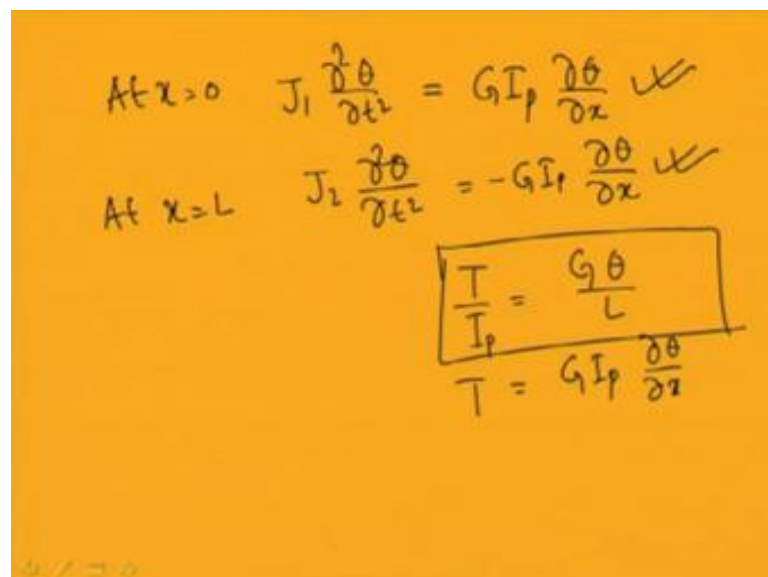 At x=0 J₁ ∂²θ/∂t² = GIₚ ∂θ/∂x
At x=L J₂ ∂²θ/∂t² = -GIₚ ∂θ/∂x
T/Iₚ = Gθ/L
T = GIₚ ∂θ/∂x